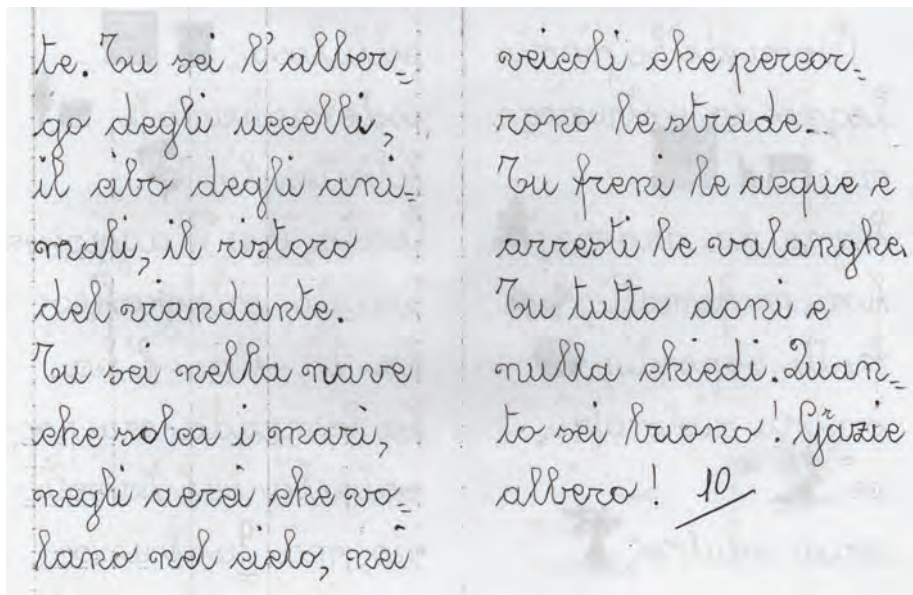 te. Tu sei l'alber=
go degli uccelli,
il cibo degli ani=
mali, il ristoro
del viandante.
Tu sei nella nave
che solca i mari,
negli aerei che vo=
lano nel cielo, nei
veicoli che percor=
rono le strade.
Tu freni le acque e
arresti le valanghe.
Tu tutto doni e
nulla chiedi. Quan=
to sei buono! Grazie
albero! 10